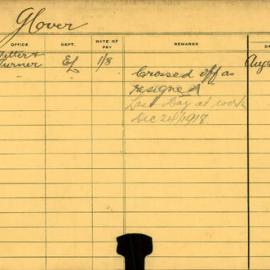 Glover
OFFICE DEPT. RATE OF PAY REMARKS DA
Fitter & Turner EL 1/8 Crossed off as Aug
resigned
Last day at work
Dec 24/1918